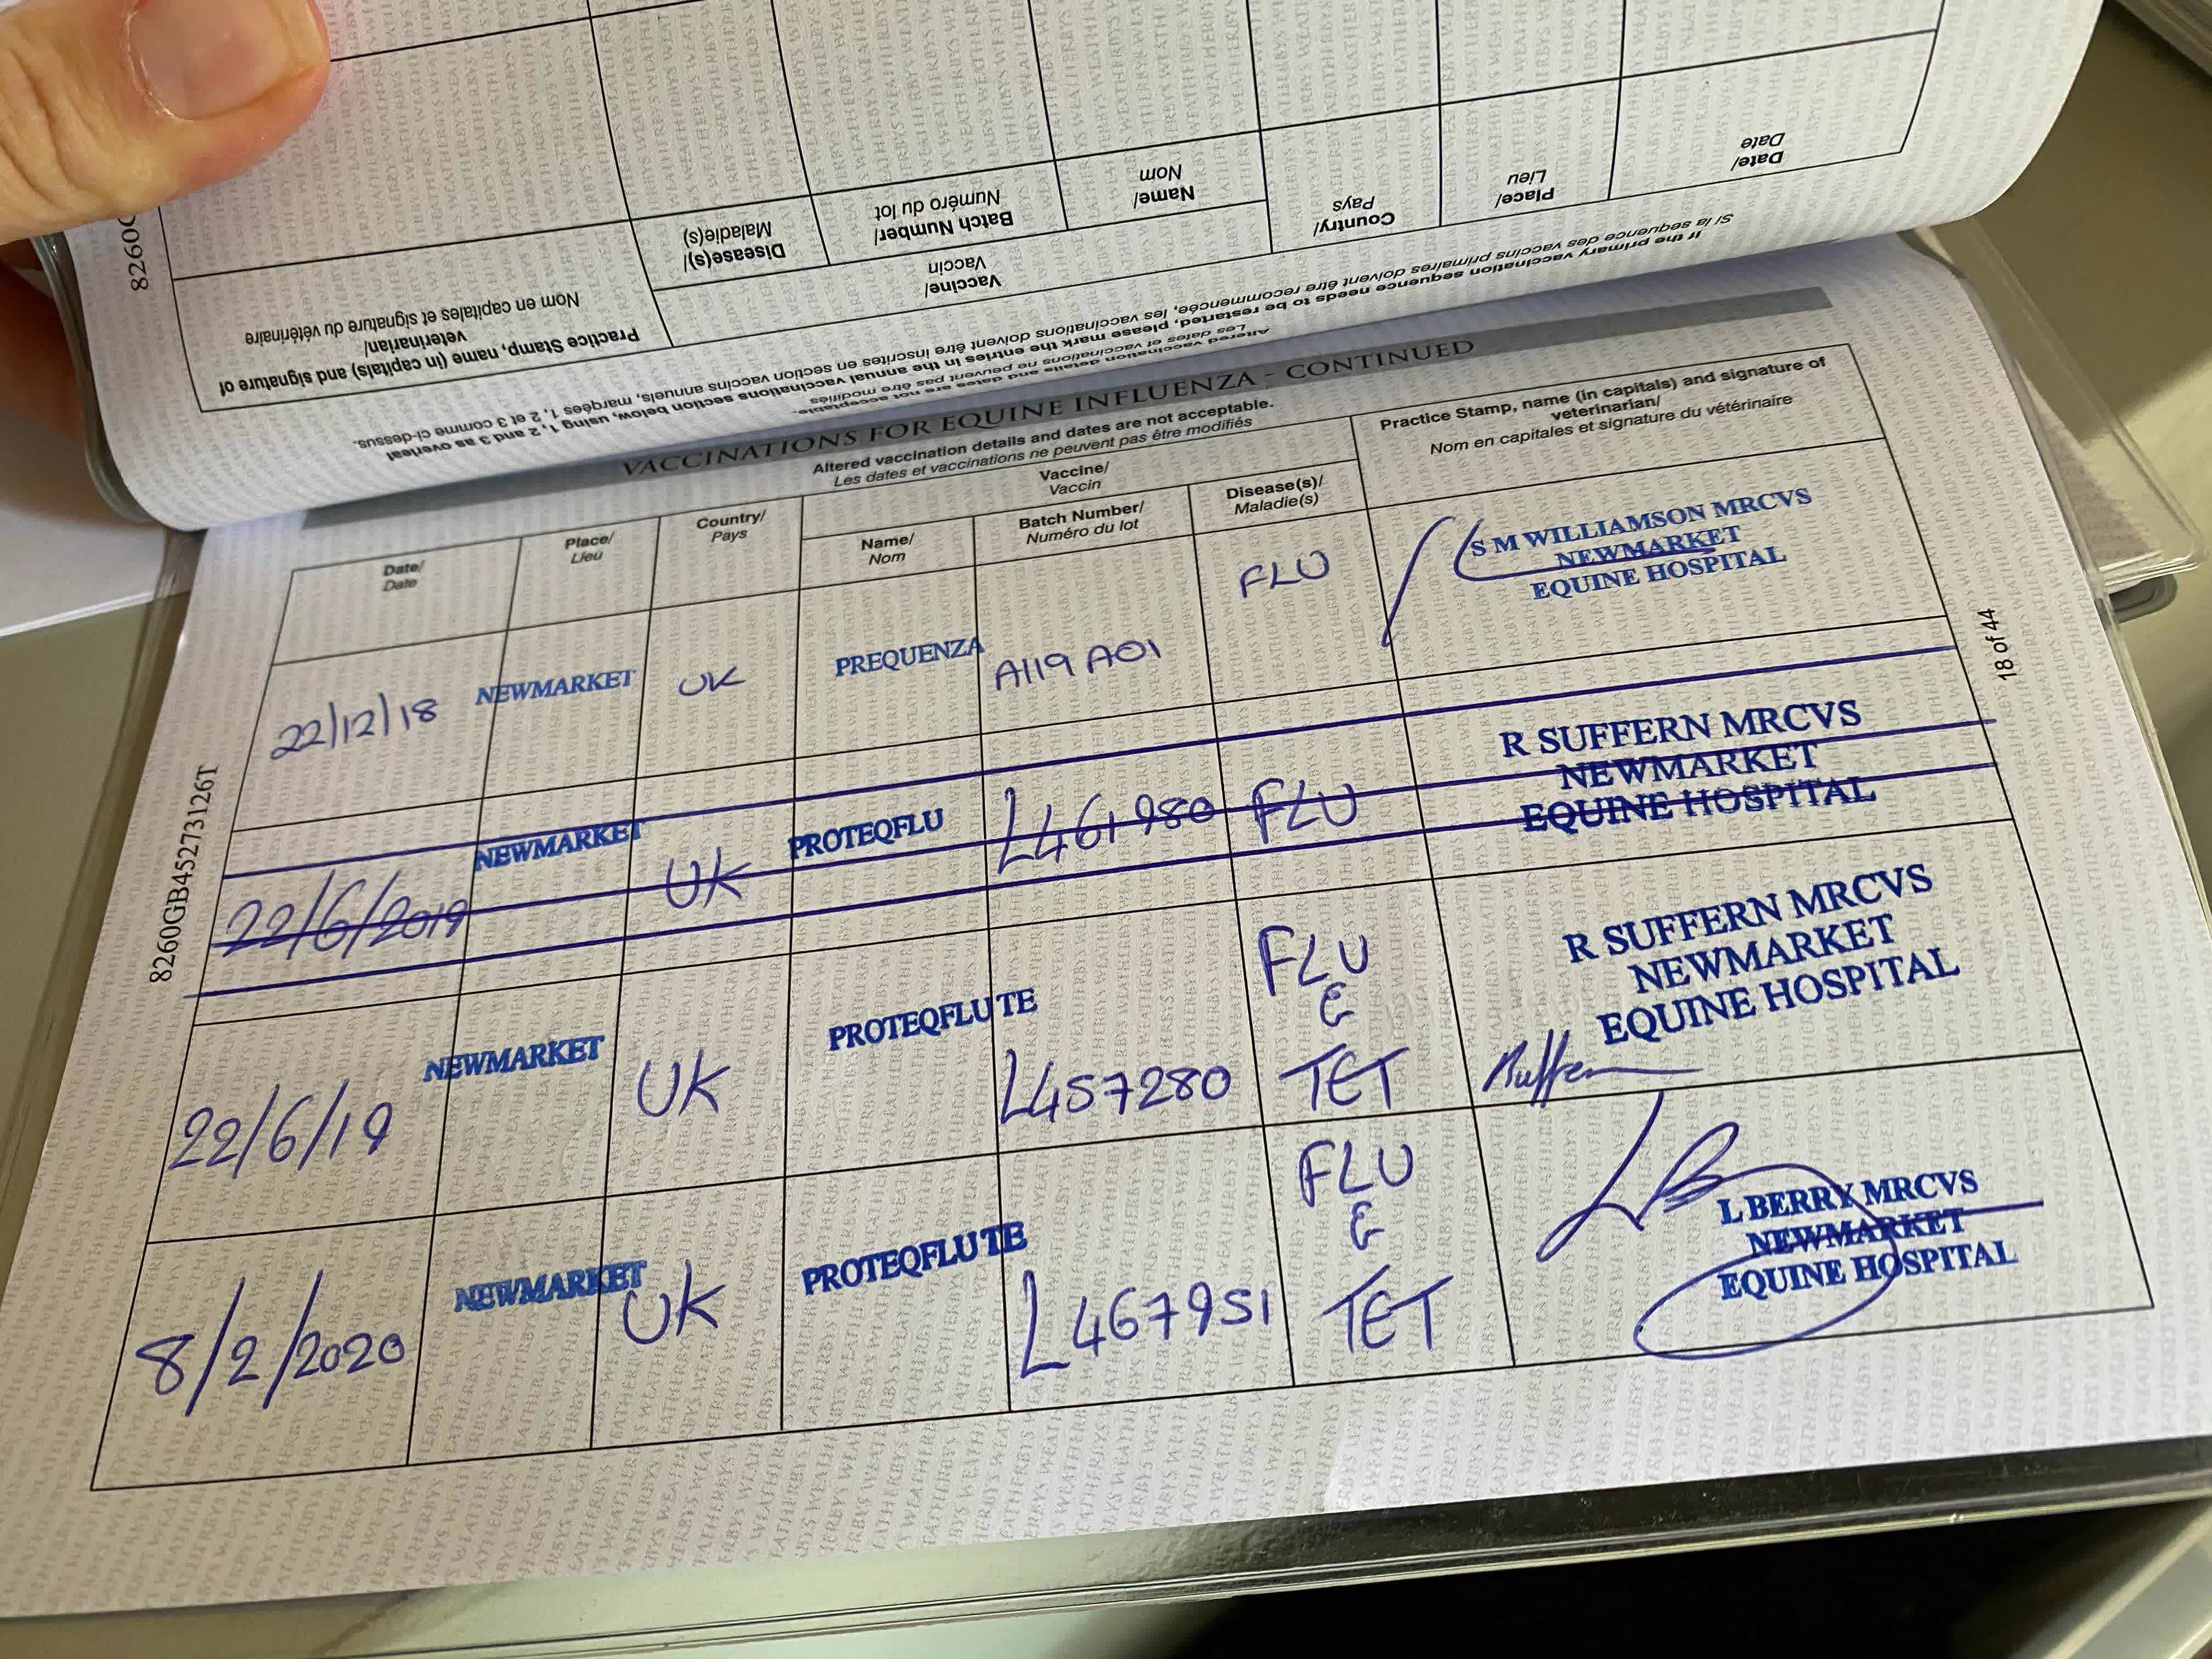 8260G
Date/
Date
Place/
Lieu
Country/
Pays
Name/
Nom
Batch Number/
Numéro du lot
Disease(s)/
Maladie(s)
Vaccine/
Vaccin
Practice Stamp, name (in capitals) and signature of
veterinarian/
Nom en capitales et signature du vétérinaire
If the primary vaccination sequence needs to be restarted, please mark the entries in the annual vaccinations section, below, using 1, 2 and 3 as overleaf
Si la sequence des vaccins primaires doivent être recommencée, les vaccinations doivent être inscrites en section vaccins annuels, marqées 1, 2 et 3 comme ci-dessus.
Altered vaccination details and dates are not acceptable.
Les dates et vaccinations ne peuvent pas être modifiés
VACCINATIONS FOR EQUINE INFLUENZA - CONTINUED
Altered vaccination details and dates are not acceptable.
Les dates et vaccinations ne peuvent pas être modifiés
Date/
Date
Place/
Lieu
Country/
Pays
Vaccine/
Vaccin
Name/
Nom
Batch Number/
Numéro du lot
Disease(s)/
Maladie(s)
Practice Stamp, name (in capitals) and signature of
veterinarian/
Nom en capitales et signature du vétérinaire
22/12/18 NEWMARKET UK PREQUENZA A119A01 FLU
S M WILLIAMSON MRCVS
NEWMARKET
EQUINE HOSPITAL
22/6/2019 NEWMARKET UK PROTEQFLU L461980 FLU
R SUFFERN MRCVS
NEWMARKET
EQUINE HOSPITAL
22/6/19 NEWMARKET UK PROTEQFLU TE L457280
FLU
&
TET
R SUFFERN MRCVS
NEWMARKET
EQUINE HOSPITAL
8/2/2020 NEWMARKET UK PROTEQFLU TE L467951
FLU
&
TET
L BERRY MRCVS
NEWMARKET
EQUINE HOSPITAL
8260GB45273126T
18 of 44